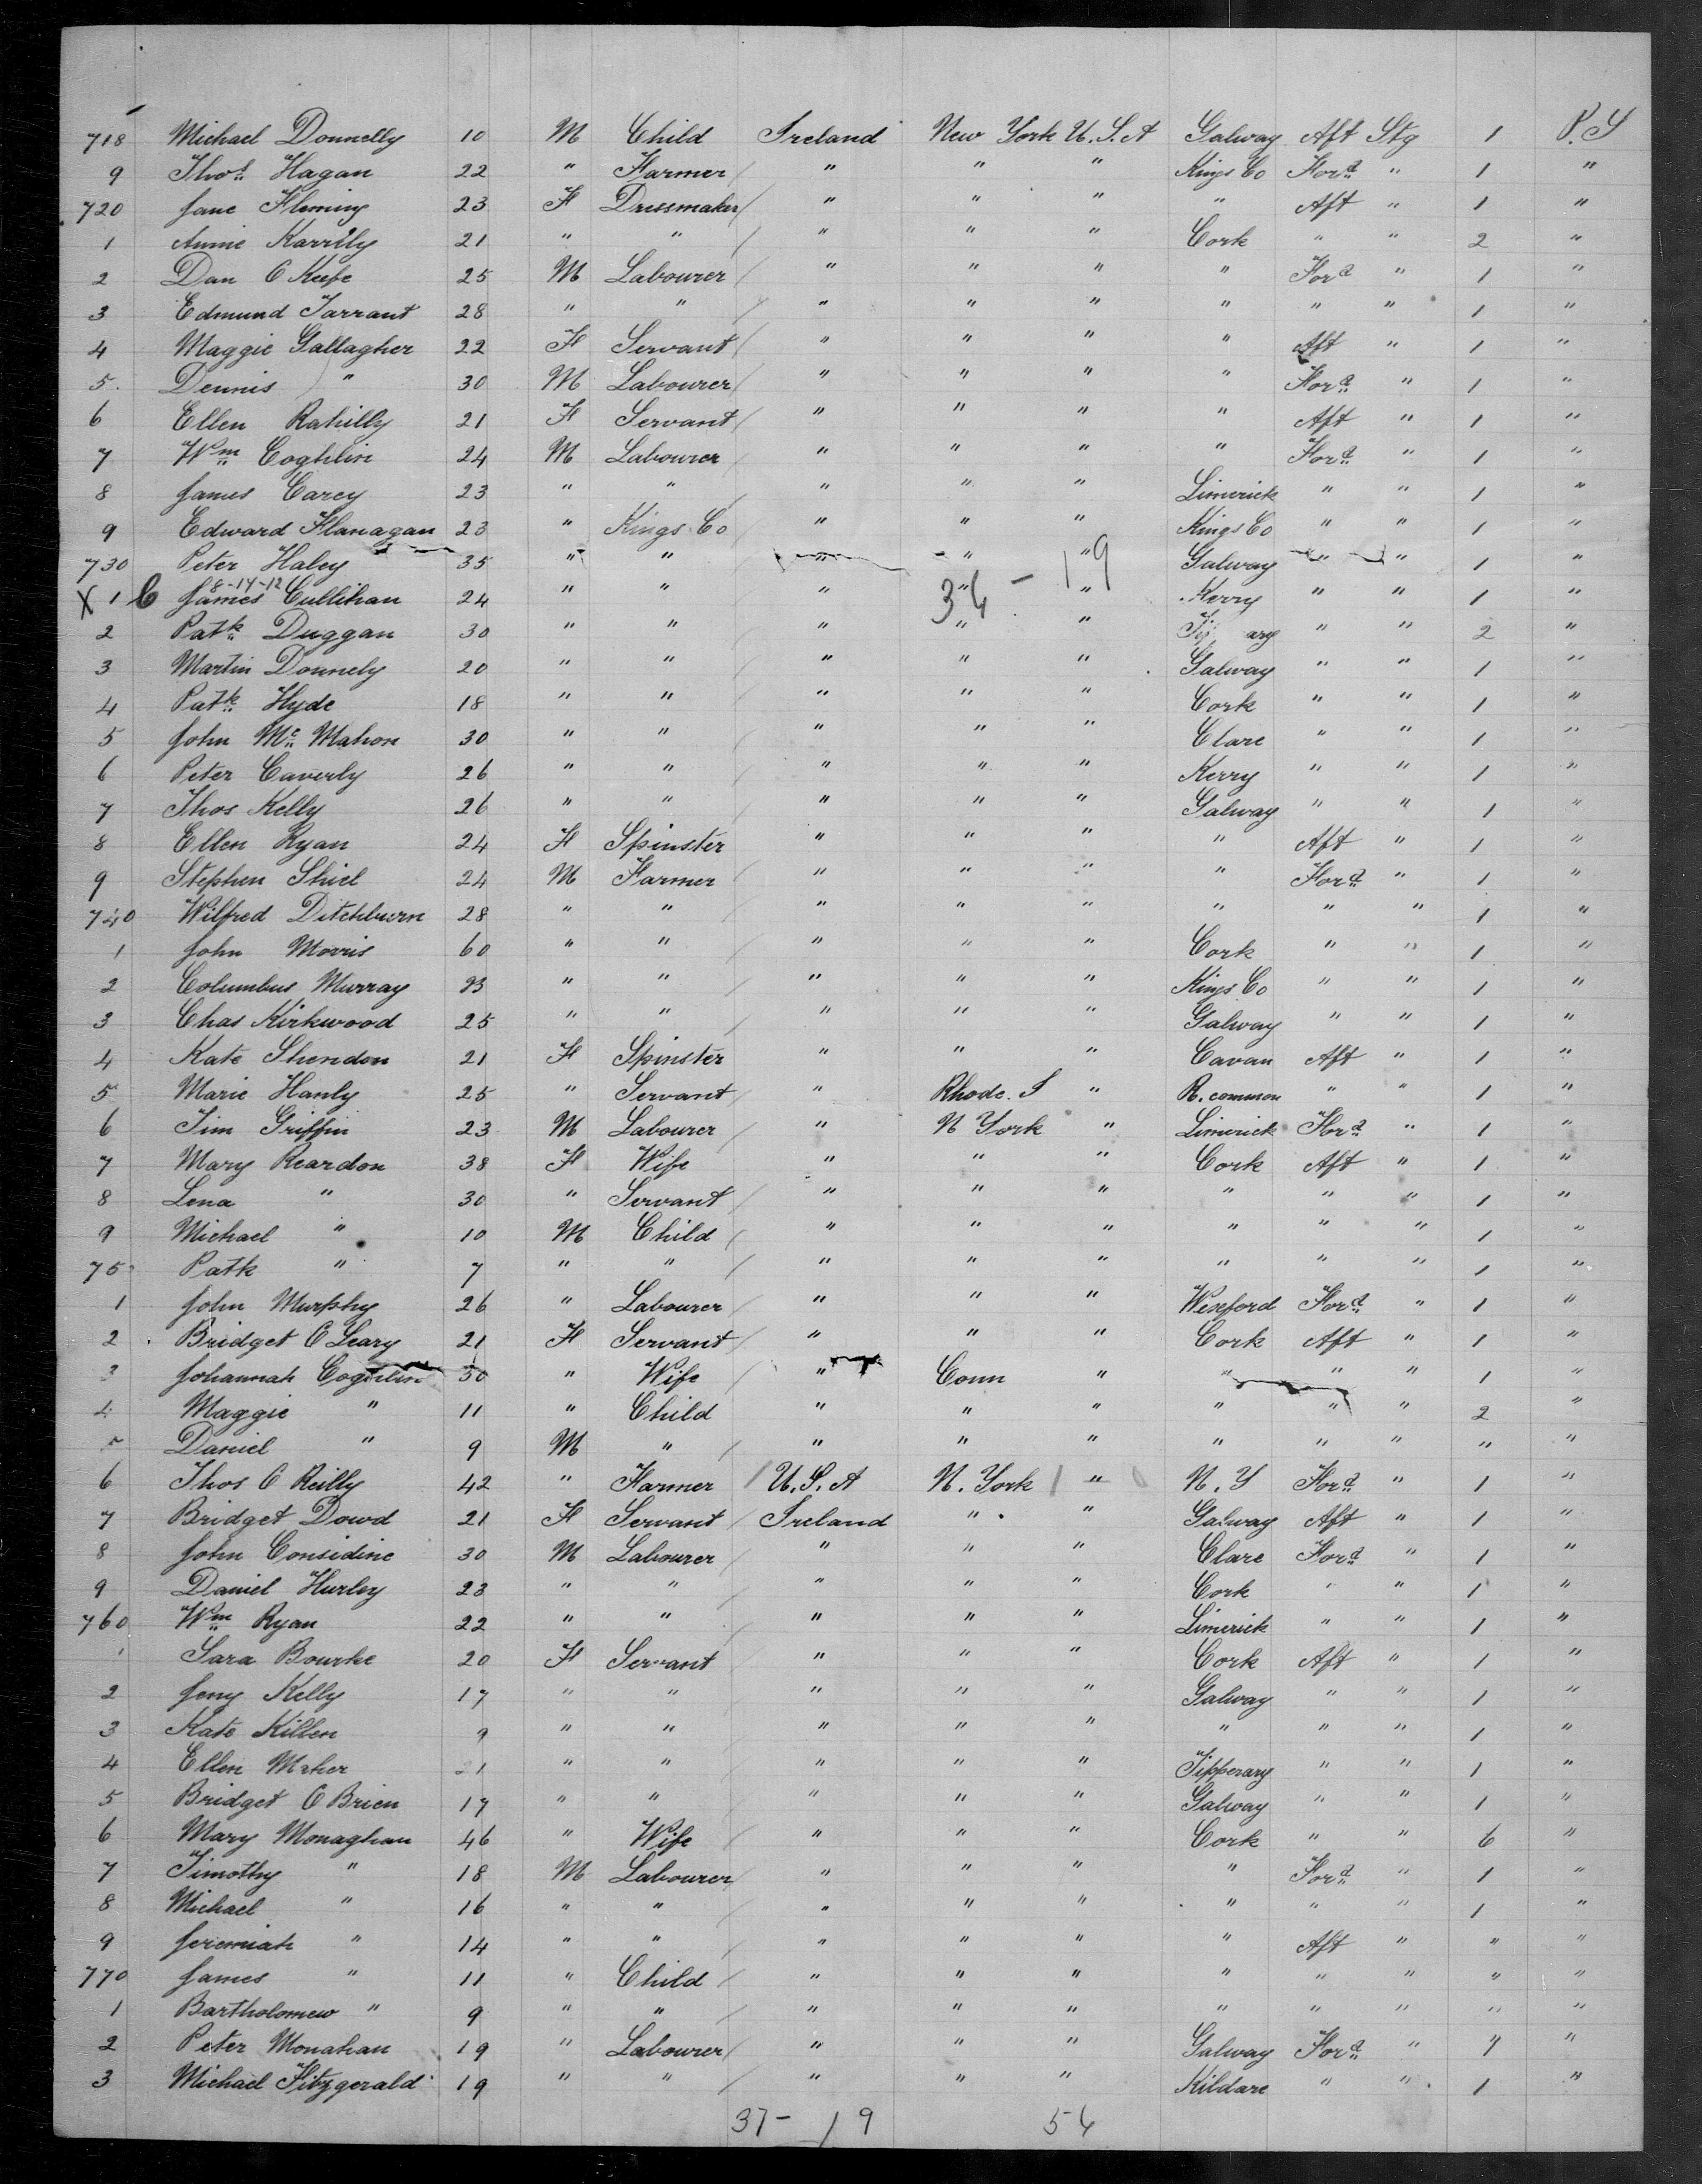 718 Michael Donnelly 10 M Child Ireland New York U.S.A Galway Aft Stg 1 P.S
9 Thos Hagan 22 " Farmer / " " " Kings Co Ford " 1 "
720 Jane Fleming 23 F Dressmaker / " " " " Aft " 1 "
1 Annie 21 " " / " " " Cork " " 2 "
2 Dan O Keefe 25 M Labourer / " " " " Ford " 1 "
3 Edmund Tarrant 28 " " / " " " " " " 1 "
4 Maggie Gallagher 22 F Servant / " " " " Aft " 1 "
5. Dennis " 30 M Labourer / " " " " Ford " 1 "
6 Ellen Rahilly 21 F Servant / " " " " Aft " 1 "
7 Wm Coghlin 24 M Labourer / " " " " Ford " 1 "
8 James Carey 23 " " / " " " Limerick " " 1 "
9 Edward Flanagan 23 " Kings Co / " " " Kings Co " " 1 "
730 Peter Haley 35 " " " " " Galway " " 1 "
8-14-12 34 - 19
X 1 C James Cullihan 24 " " / " " " Kerry " " 1 "
2 Patk Duggan 30 " " / " " " " " 2 "
3 Martin Donnely 20 " " / " " " Galway " " 1 "
4 Patk Hyde 18 " " / " " " Cork " " 1 "
5 John Mc Mahon 30 " " / " " " Clare " " 1 "
6 Peter Caverly 26 " " / " " " Kerry " " 1 "
7 Thos Kelly 26 " " / " " " Galway " " 1 "
8 Ellen Ryan 24 F Spinster " " " " Aft " 1 "
9 Stephen Shiel 24 M Farmer / " " " " Ford " 1 "
740 Wilfred Ditchburn 28 " " / " " " " " " 1 "
1 John Morris 60 " " / " " " Cork " " 1 "
2 Columbus Murray 23 " " / " " " Kings Co " " 1 "
3 Chas Kirkwood 25 " " / " " " Galway " " 1 "
4 Kate Sheridan 21 F Spinster " " " Cavan Aft " 1 "
5 Marie Hanly 25 " Servant / " Rhode. I " R. common " " 1 "
6 Tim Griffin 23 M Labourer / " N York " Limerick Ford " 1 "
7 Mary Reardon 38 F Wife / " " " Cork Aft " 1 "
8 Lena " 30 " Servant / " " " " " " 1 "
9 Michael " 10 M Child / " " " " " " 1 "
750 Patk " 7 " " / " " " " " " 1 "
1 John Murphy 26 " Labourer / " " " Wexford Ford " 1 "
2 Bridget O Leary 21 F Servant / " " " Cork Aft " 1 "
3 Johannah Coghlin 50 " Wife / " Conn " " " " 1 "
4 Maggie " 11 " Child " " " " " " 2 "
5 Daniel " 9 M " / " " " " " " " "
6 Thos O Reilly 42 " Farmer / U.S.A N. York / " N.Y Ford " 1 "
7 Bridget Dowd 21 F Servant / Ireland " " Galway Aft " 1 "
8 John Considine 30 M Labourer / " " " Clare Ford " 1 "
9 Daniel Hurley 23 " " / " " " Cork " " 1 "
760 Wm Ryan 22 " " / " " " Limerick " " 1 "
1 Sara Bourke 20 F Servant / " " " Cork Aft " 1 "
2 Jeny Kelly 17 " " / " " " Galway " " 1 "
3 Kate Killen 9 " " / " " " " " " 1 "
4 Ellen Maher 21 " " / " " " Tipperary " " 1 "
5 Bridget O Brien 17 " " / " " " Galway " " 1 "
6 Mary Monaghan 46 " Wife / " " " Cork " " 6 "
7 Timothy " 18 M Labourer / " " " " Ford " 1 "
8 Michael " 16 " " / " " " " " " 1 "
9 Jeremiah " 14 " " / " " " " Aft " " "
770 James " 11 " Child / " " " " " " " "
1 Bartholomew " 9 " " / " " " " " " " "
2 Peter Monahan 19 " Labourer / " " " Galway Ford " 7 "
3 Michael Fitzgerald 19 " " / " " " Kildare " " 1 "
37 - 19 54